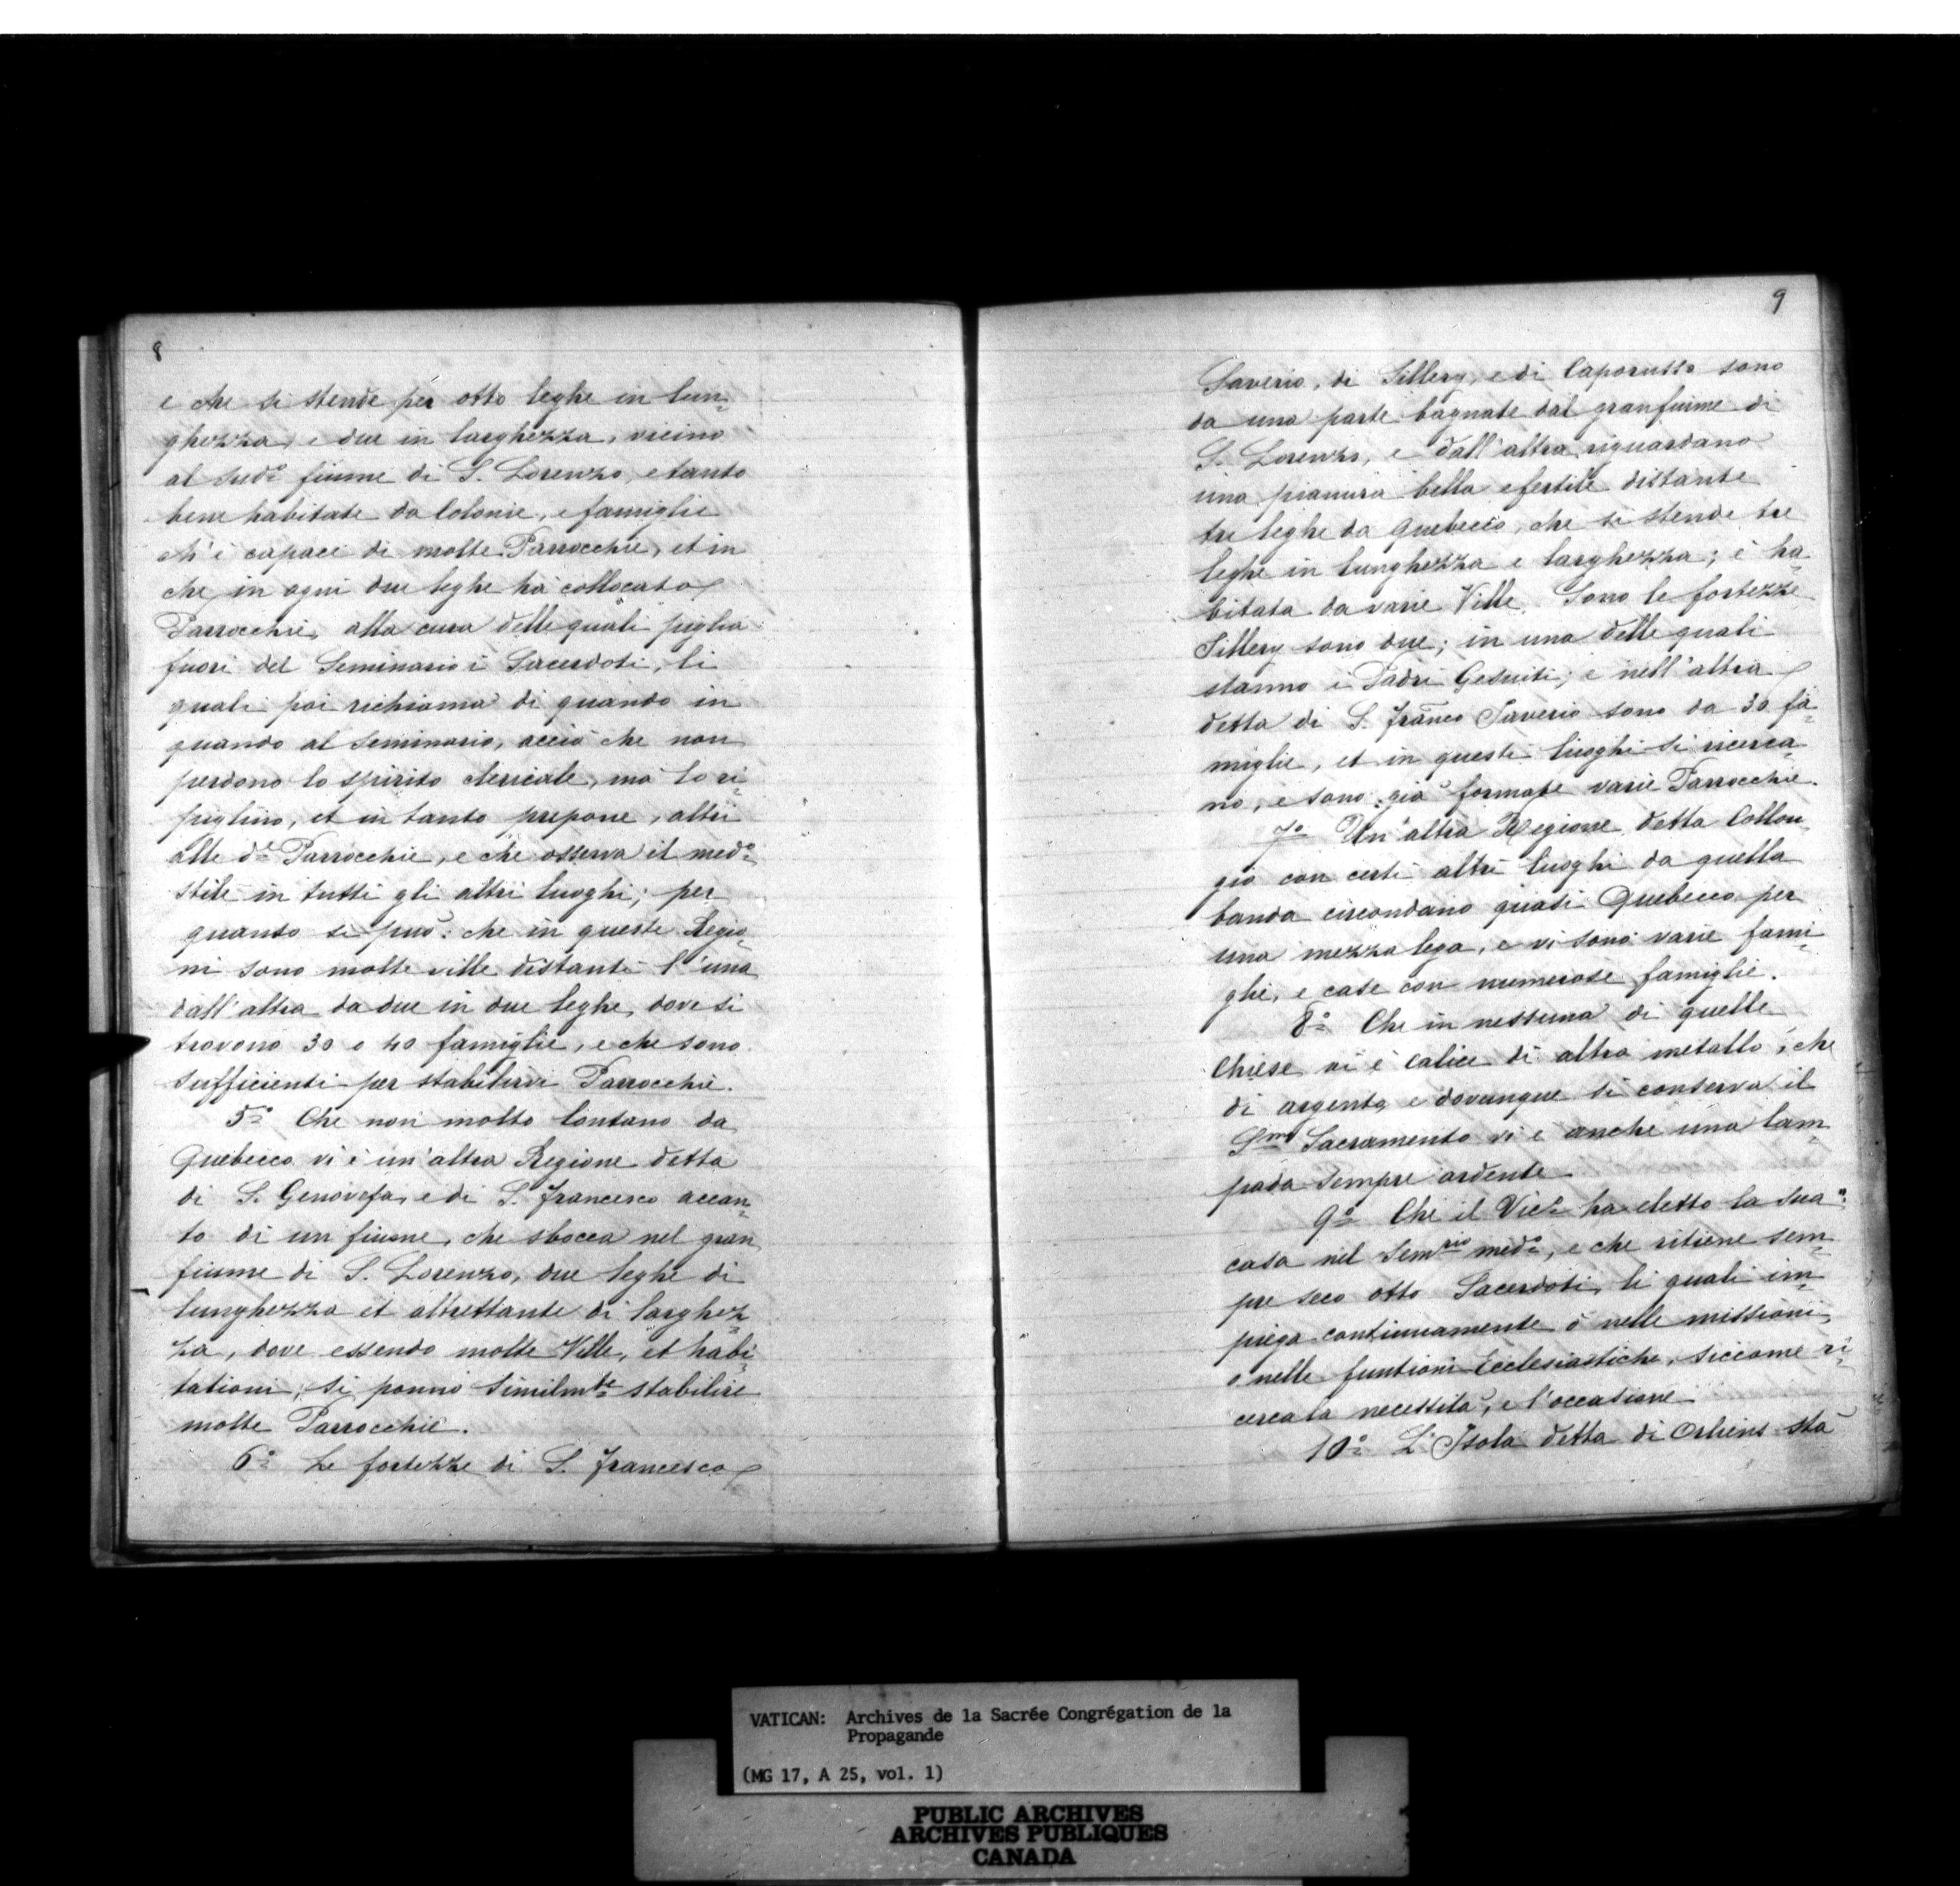 8
e che si stende per otto leghe in lun-
ghezza, e due in larghezza, vicino
al sud.º fiume di S. Lorenzo, e tanto
bene habitate da Colonie, e famiglie
ch'è capace di molte Parrocchie, et in
che in ogni due leghe hà collocato
Parrocchie, alla cura delle quali piglia
fuori del Seminario i Sacerdoti, li
quali poi richiama di quando in
quando al Seminario, acciò che non
perdono lo spirito clericale, mà lo ri-
piglino, et in tanto prepone, altri
alle d.e Parrocchie, e che osserva il med.º
stile in tutti gli altri luoghi; per
quanto si può: che in queste Regio-
ni sono molte ville distanti l'una
dall'altra da due in due leghe, dove si
trovono 30 o 40 famiglie, e che sono
sufficienti per stabilirvi Parrocchie.
5.º Che non molto lontano da
Quebecco vi è un'altra Regione detta
di S. Genovefa, e di S. Francesco accan-
to di un fiume, che sbocca nel gran
fiume di S. Lorenzo, due leghe di
lunghezza et altrettante di larghez-
za, dove essendo molte Ville, et habi-
tationi, si ponno similm.te stabilire
molte Parrocchie.
6.º Le fortezze di S. Francesco
9
Saverio, di Sillery, e di Caporusso sono
da una parte bagnate dal gran fiume di
S. Lorenzo, e dall'altra riguardano
una pianura bella e fertile distante
tre leghe da Quebecco, che si stende tre
leghe in lunghezza e larghezza; è ha-
bitata da varie Ville. Sono le fortezze
Sillery sono due; in una delle quali
stanno i Padri Gesuiti; e nell'altra
detta di S. Franco Saverio sono da 30 fa-
miglie, et in questi luoghi si ricerca-
no, e sono già formate varie Parrocchie.
7.º Un'altra Regione detta Collon-
gio con certi altri luoghi da quella
banda circondano quasi Quebecco per
una mezza lega, e vi sono varie fami-
ghi, e case con numerose famiglie.
8.º Che in nessuna di quelle
Chiese vi è calice di altro metallo, che
di argento, e dovunque si conserva il
S.mo Sacramento vi è anche una lam-
pada sempre ardente
9.º Che il Vic.º ha eletto la sua
casa nel Sem.rio med.º, e che ritiene sem-
pre seco otto Sacerdoti, li quali im-
piega continuamente ò nelle missioni,
o nelle funtioni Ecclesiastiche, siccome ri-
cerca la necessità, e l'occasione
10.º L'Isola detta di Orliens stà
VATICAN: Archives de la Sacrée Congrégation de la
Propagande
(MG 17, A 25, vol. 1)
PUBLIC ARCHIVES
ARCHIVES PUBLIQUES
CANADA